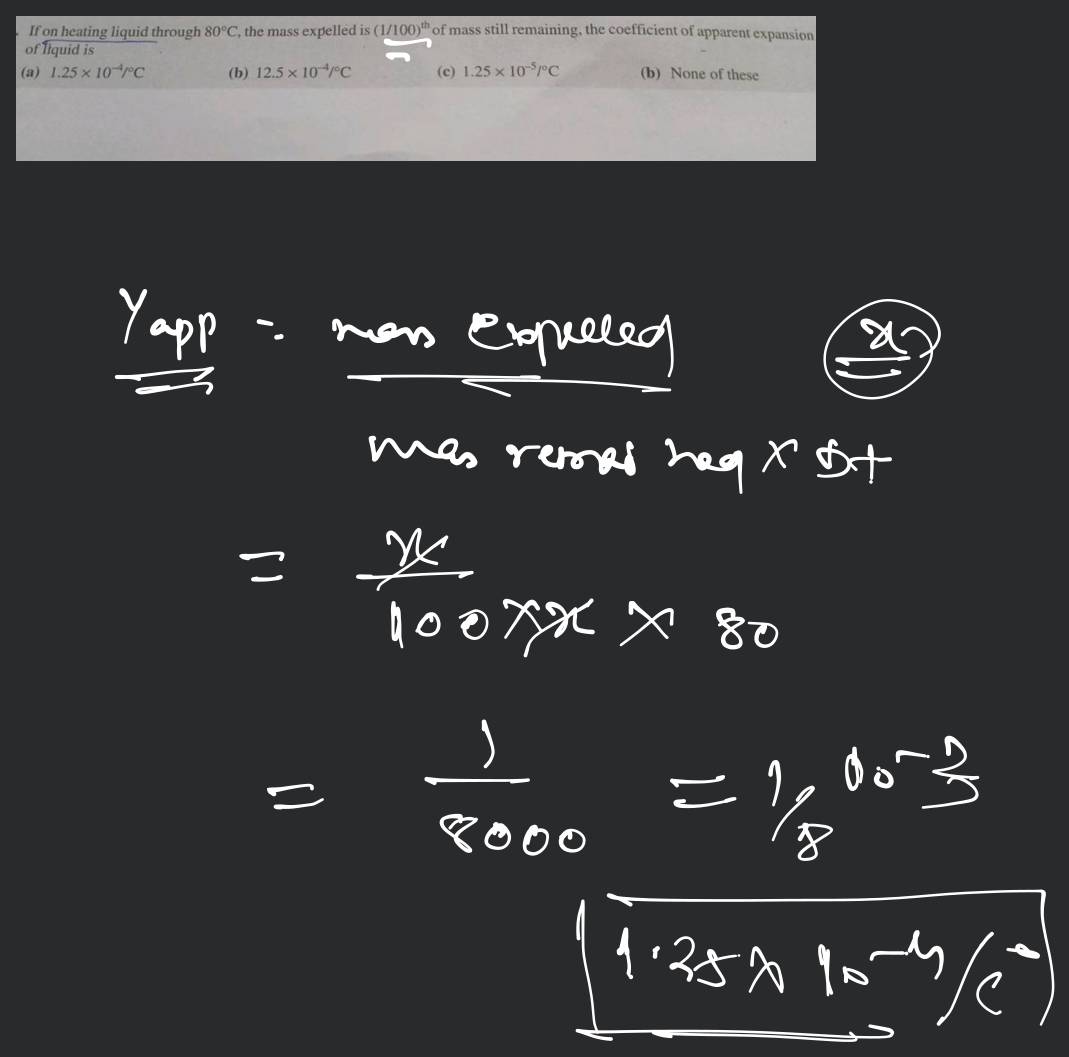 If on heating liquid through 80°C, the mass expelled is (1/100)th of mass still remaining, the coefficient of apparent expansion
of liquid is
(a) 1.25 × 10⁻⁴/°C (b) 12.5 × 10⁻⁴/°C (c) 1.25 × 10⁻⁵/°C (b) None of these
Yapp = mass Expelled x
mass × Δt
= x
100 × x × 80
= 1
8000
= 1/8 10⁻³
1.25 × 10⁻⁴/c°